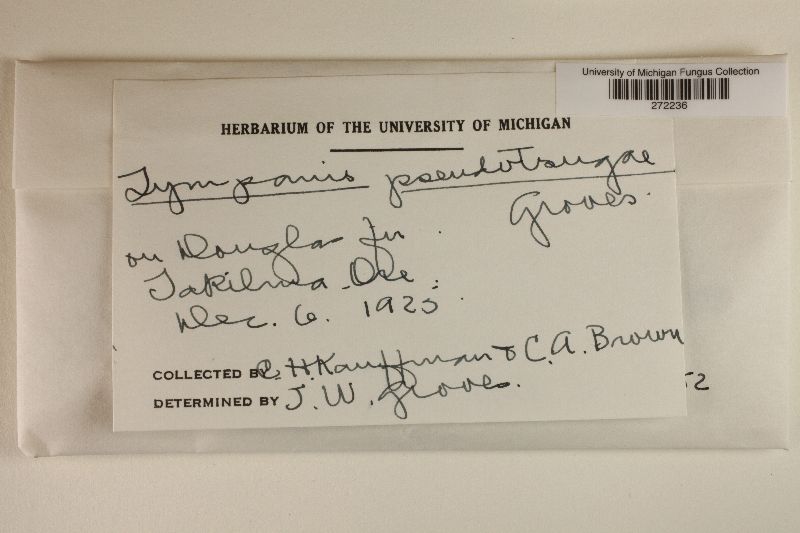 University of Michigan Fungus Collection
272236
HERBARIUM OF THE UNIVERSITY OF MICHIGAN
Tympanis pseudotsugae
Groves.
on Douglas fir.
Takilma Ore.
Dec. 6. 1925.
COLLECTED BY C. H. Kauffman & C. A. Brown
DETERMINED BY J. W. Groves.
52